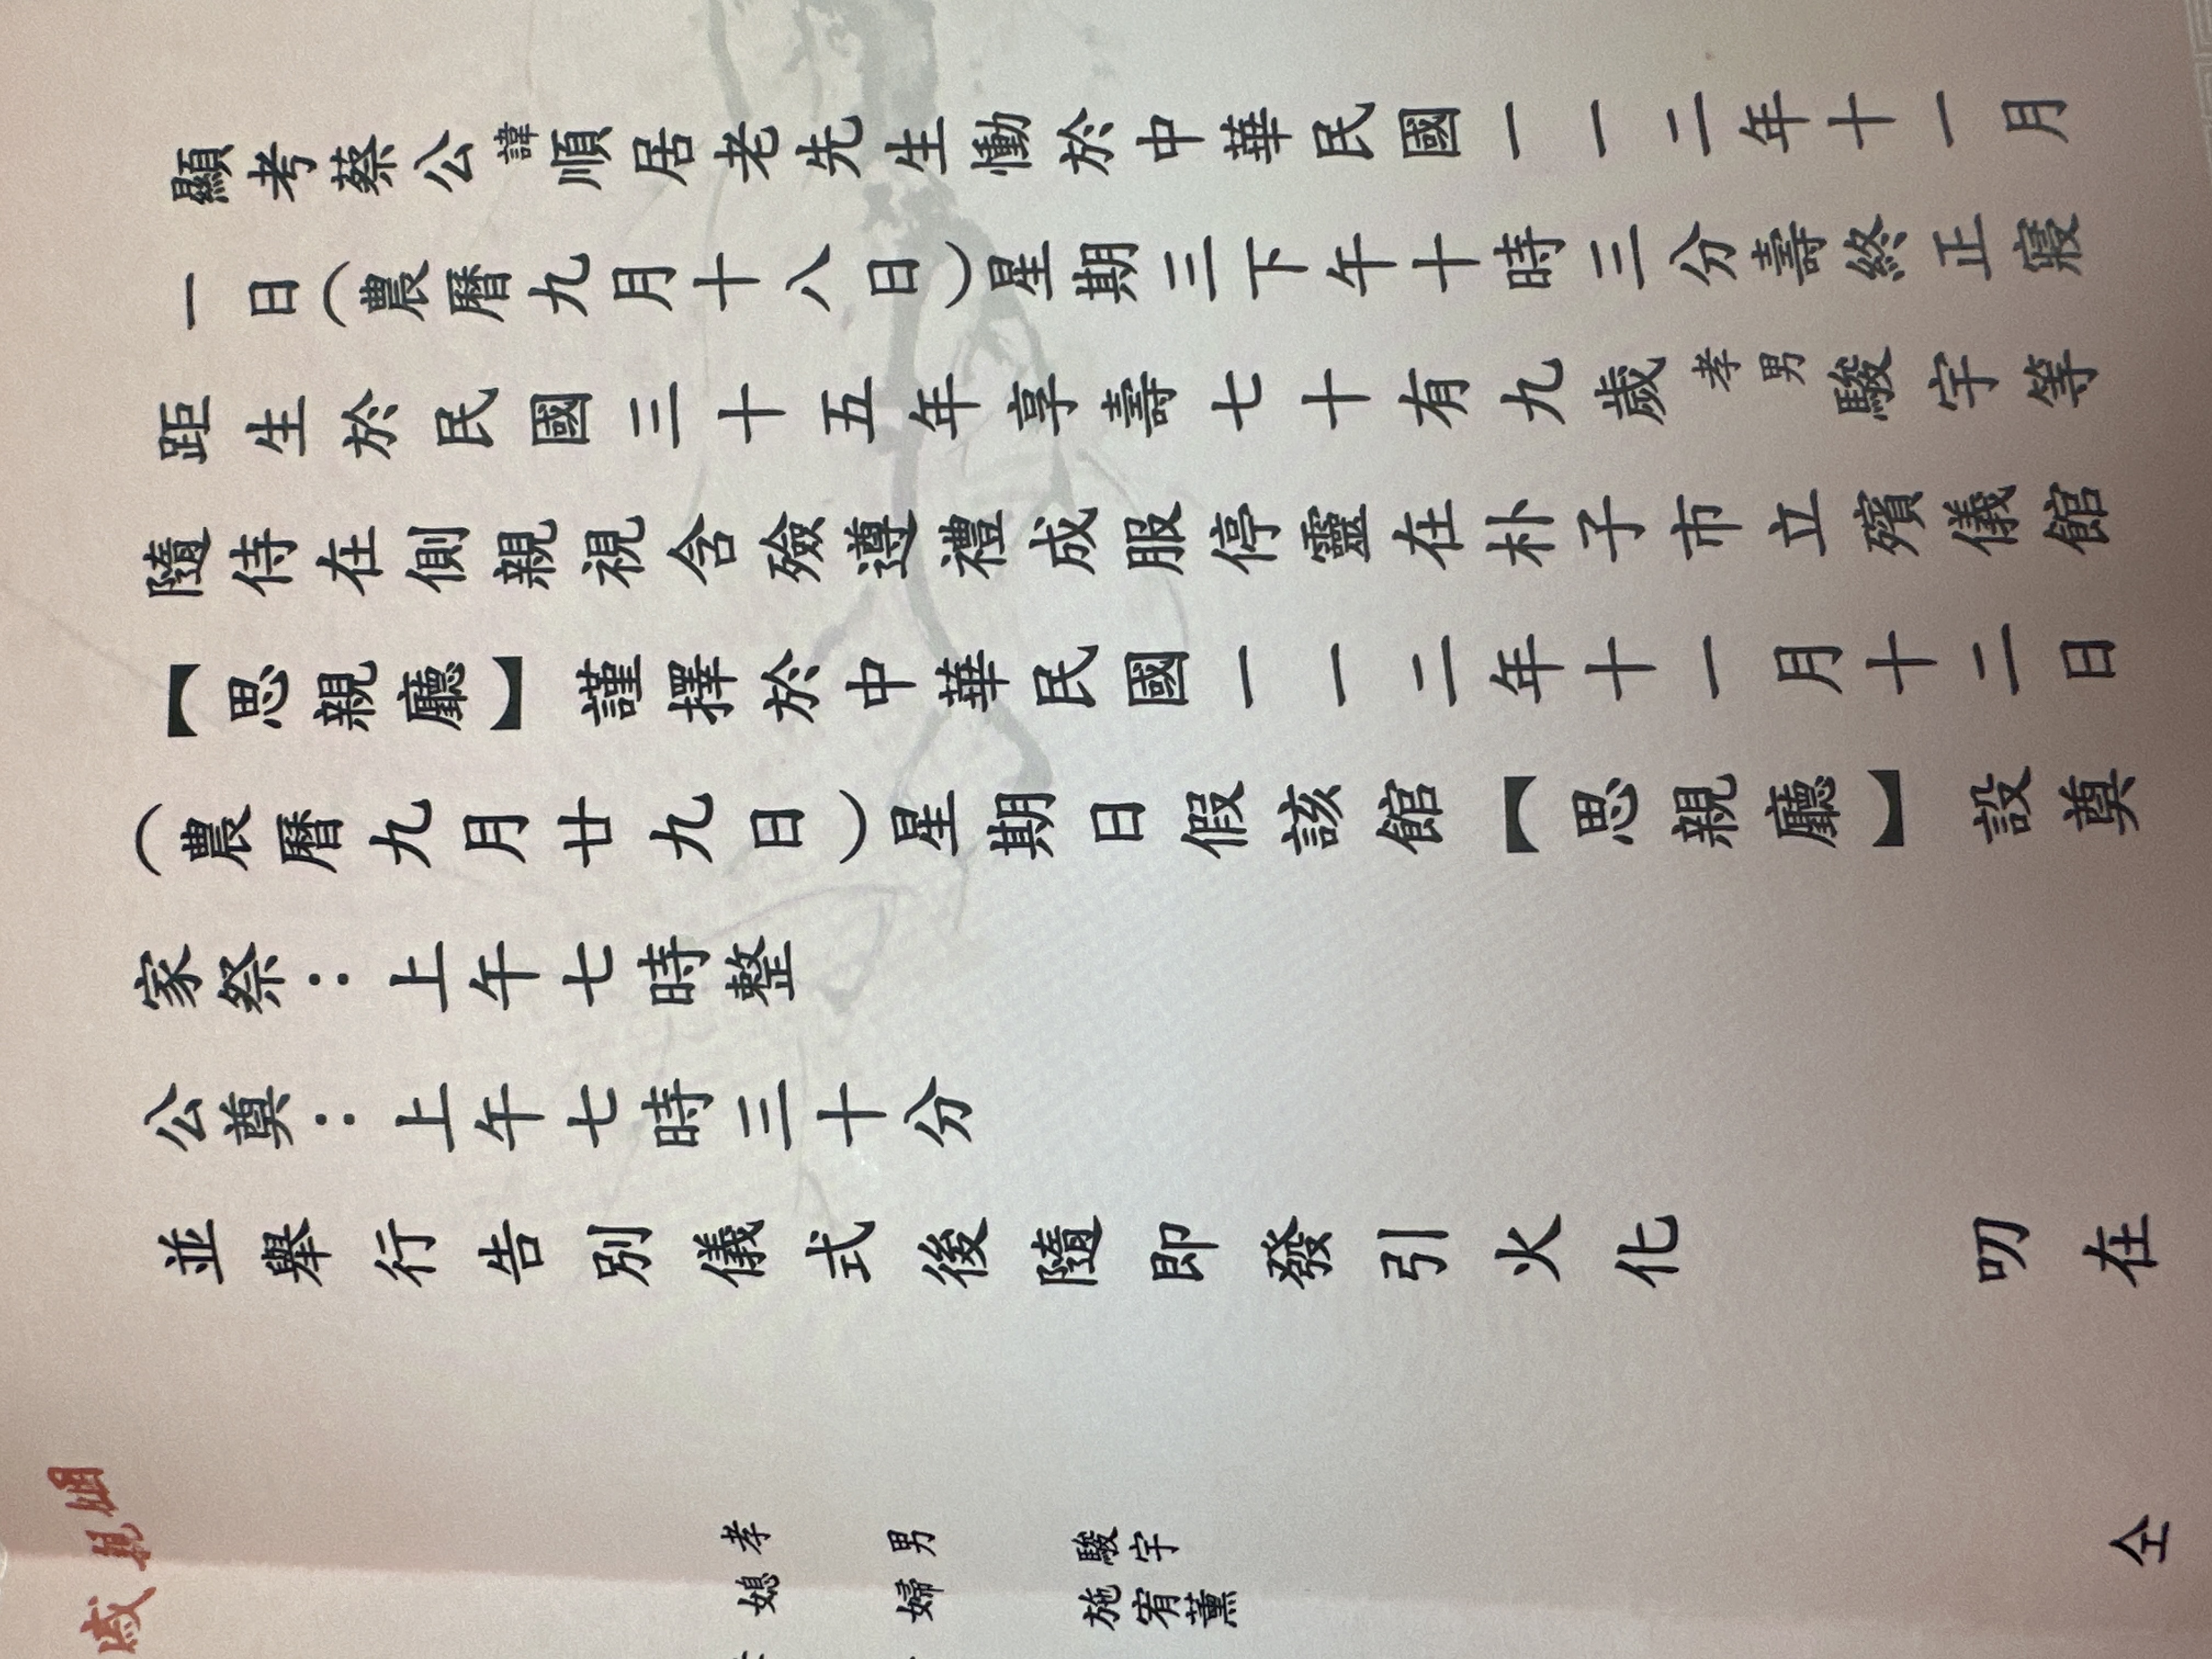 顯考蔡公諱順居老先生慟於中華民國一一二年十一月
一日(農曆九月十八日)星期三下午十時三分壽終正寢
距生於民國三十五年享壽七十有九歲孝男駿宇等
隨侍在側親視含殮遵禮成服停靈在朴子市立殯儀館
【思親廳】謹擇於中華民國一一二年十一月十二日
(農曆九月廿九日)星期日假該館【思親廳】設奠
家祭：上午七時整
公奠：上午七時三十分
並舉行告別儀式後隨即發引火化 叨在
孝男 駿宇 仝
媳婦 施宥薰